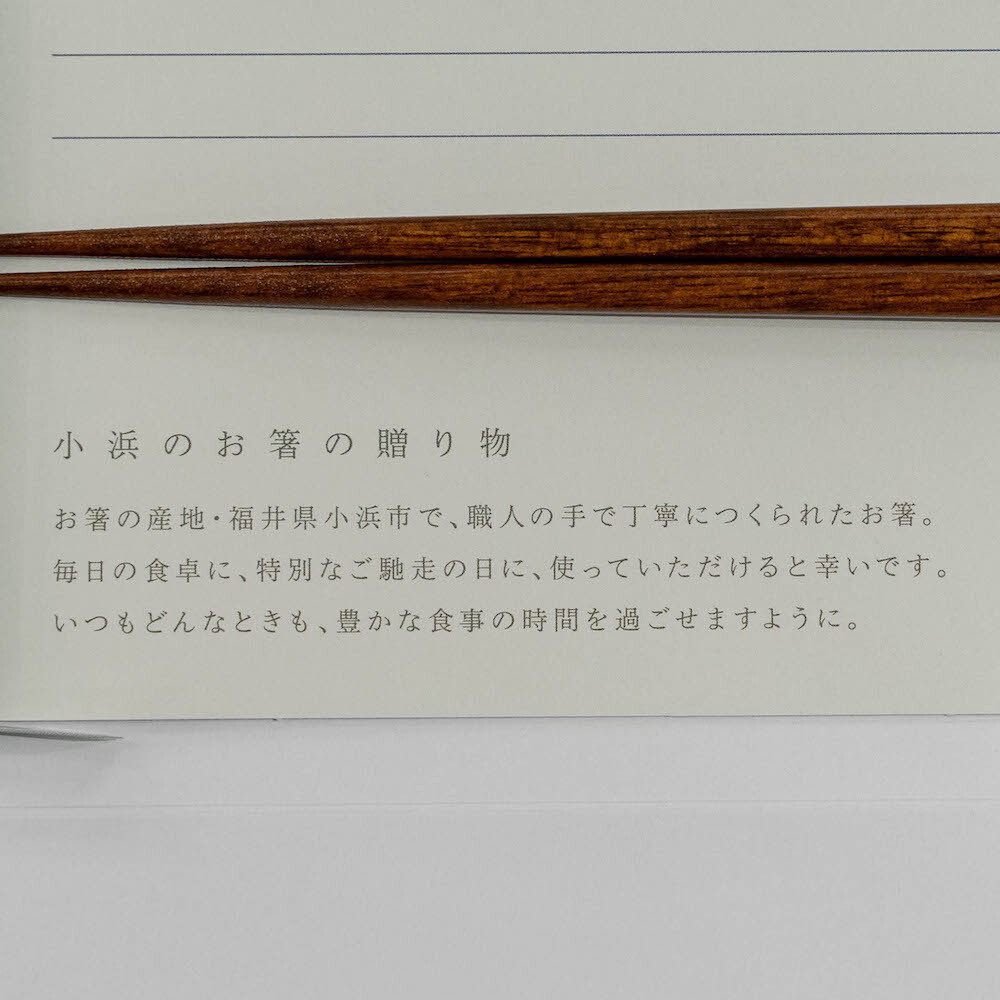 小浜のお箸の贈り物
お箸の産地・福井県小浜市で、職人の手で丁寧につくられたお箸。
毎日の食卓に、特別なご馳走の日に、使っていただけると幸いです。
いつもどんなときも、豊かな食事の時間を過ごせますように。